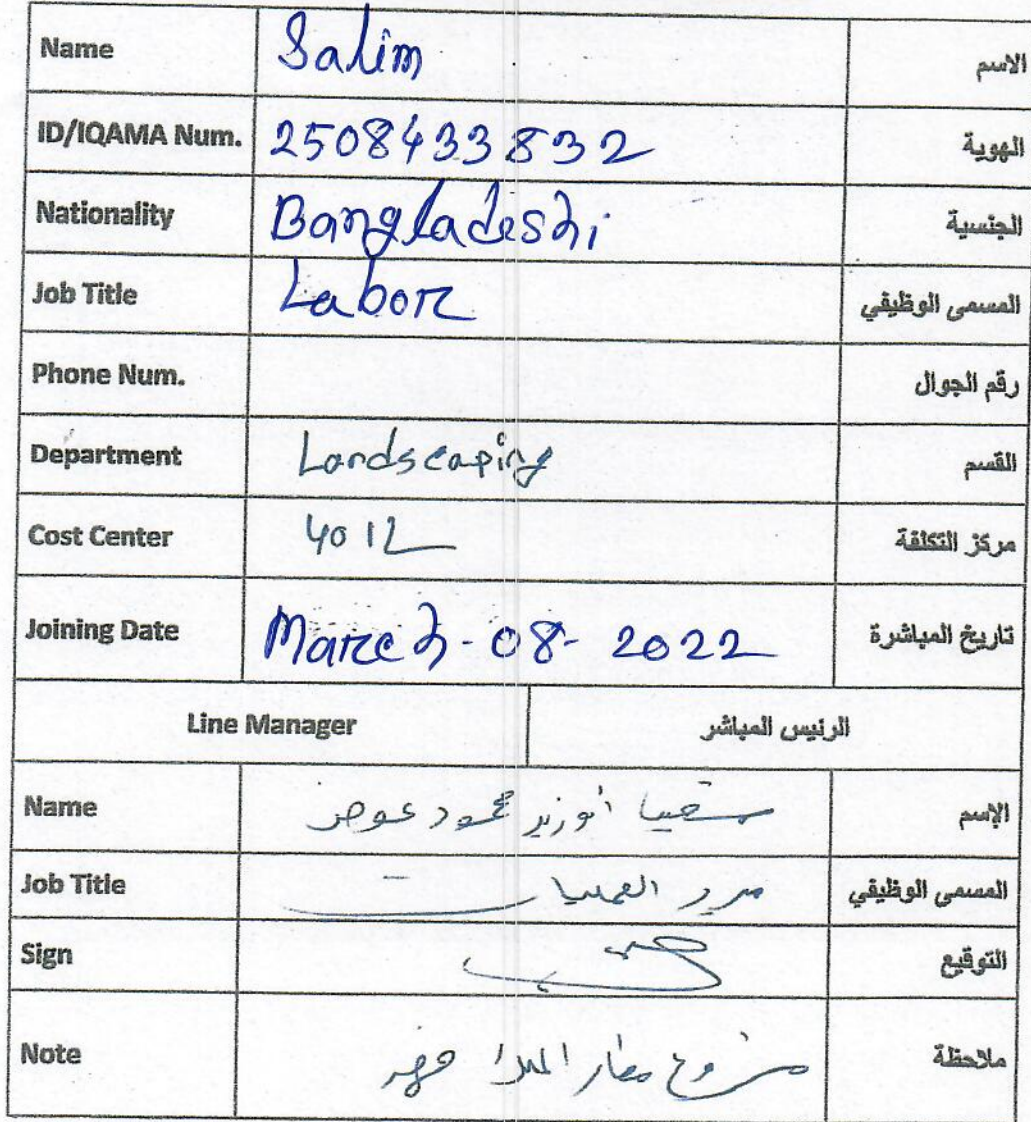 Name Salim الاسم
ID/IQAMA Num. 2508433832 الهوية
Nationality Bangladeshi الجنسية
Job Title Labor المسمى الوظيفي
Phone Num. رقم الجوال
Department Landscaping القسم
Cost Center مركز التكلفة
Joining Date March-08-2022 تاريخ المباشرة
Line Manager الرئيس المباشر
Name محمود عوض الإسم
Job Title مدير العمليات المسمى الوظيفي
Sign التوقيع
Note مشروع مطار الملك فهد ملاحظة